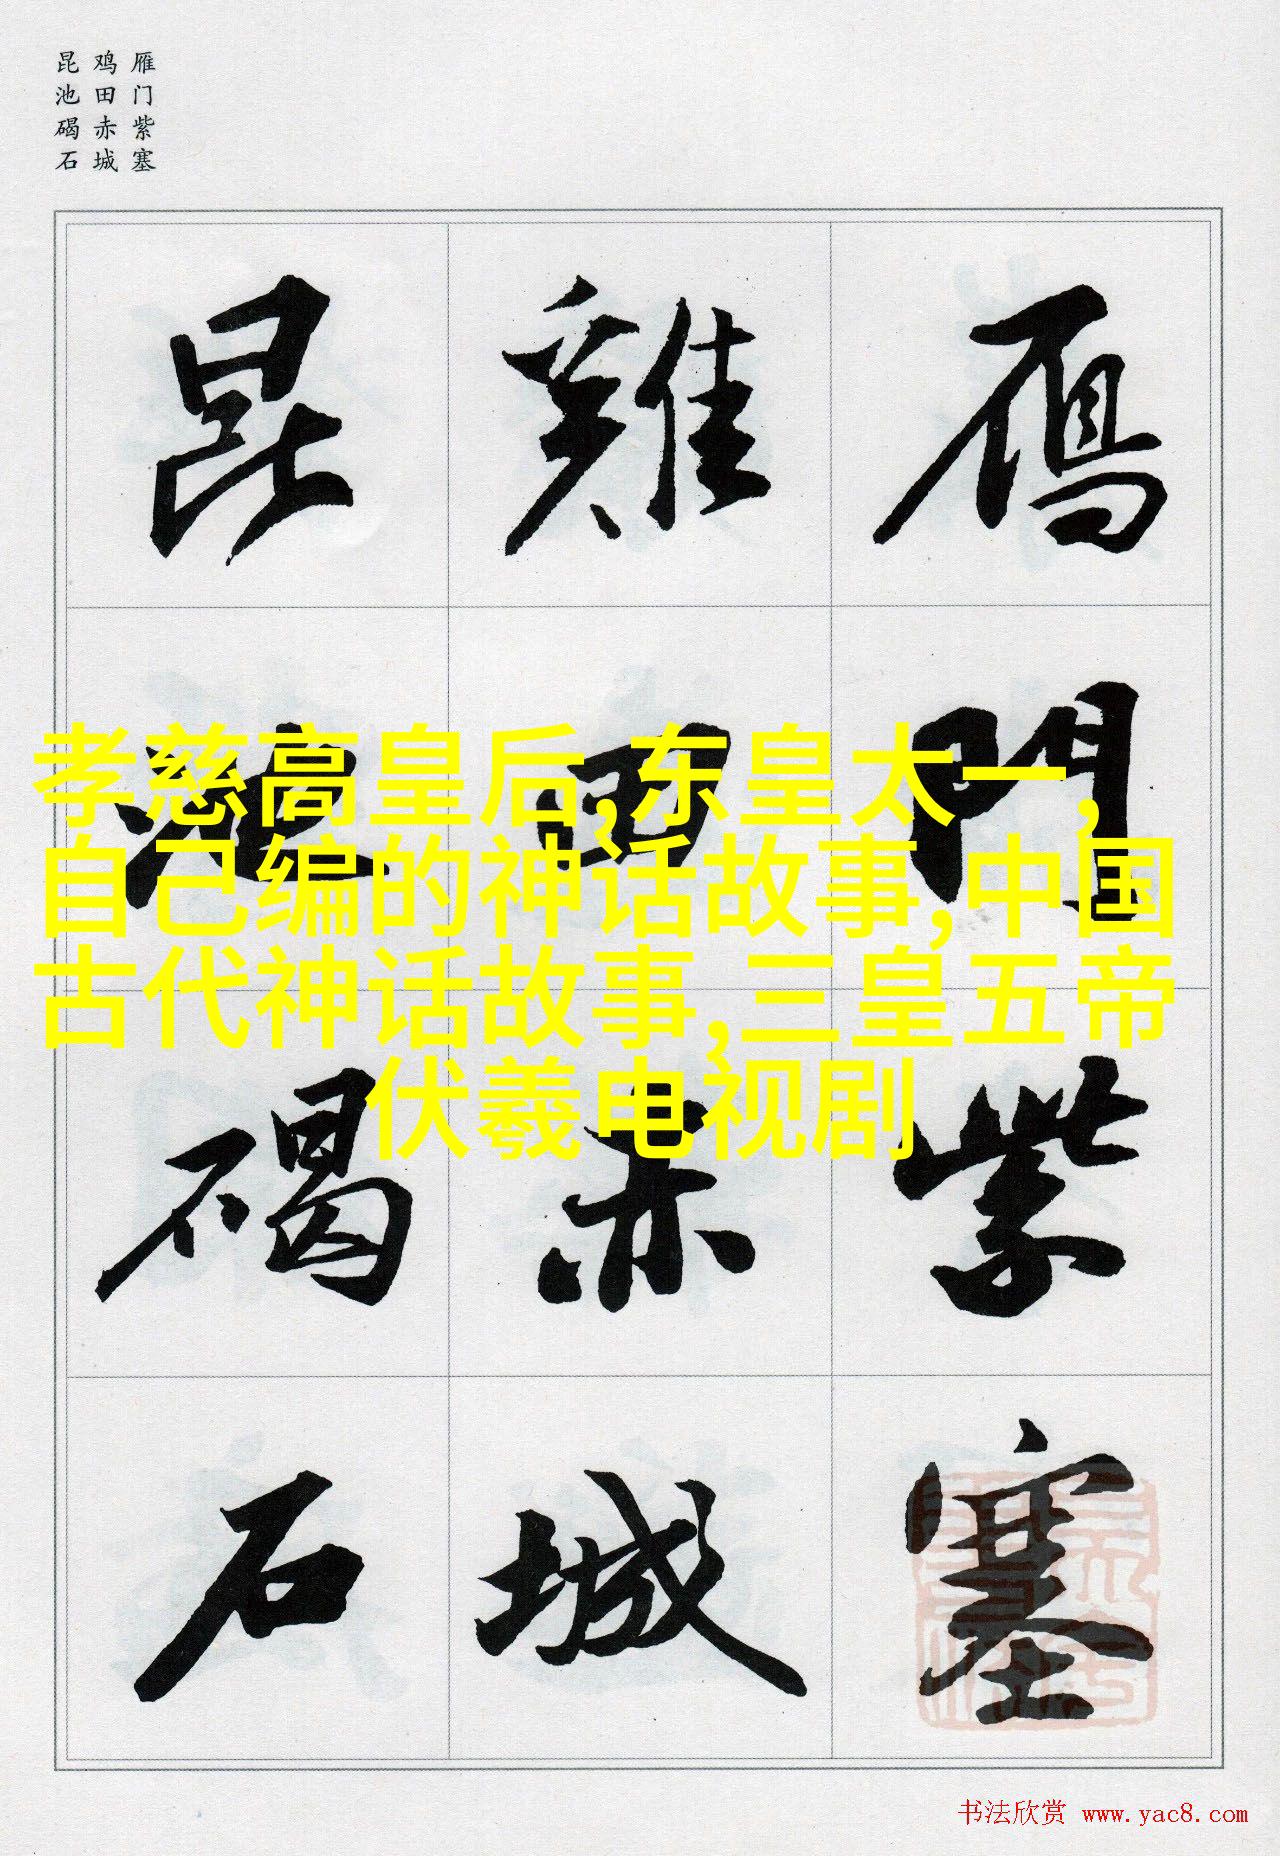 雁门紫塞
鸡田赤城
昆池碣石
鴈門紫塞
雞田赤城
昆池碣石
孝慈高皇后,东皇太一,
自己编的神话故事,中国
古代神话故事,三皇五帝
伏羲电视剧
书法欣赏 www.yac8.com